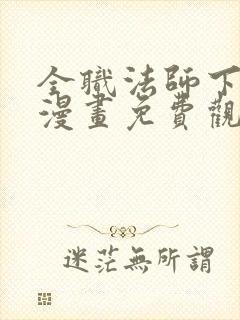 全職法師下
漫畫免費觀
迷茫無所謂